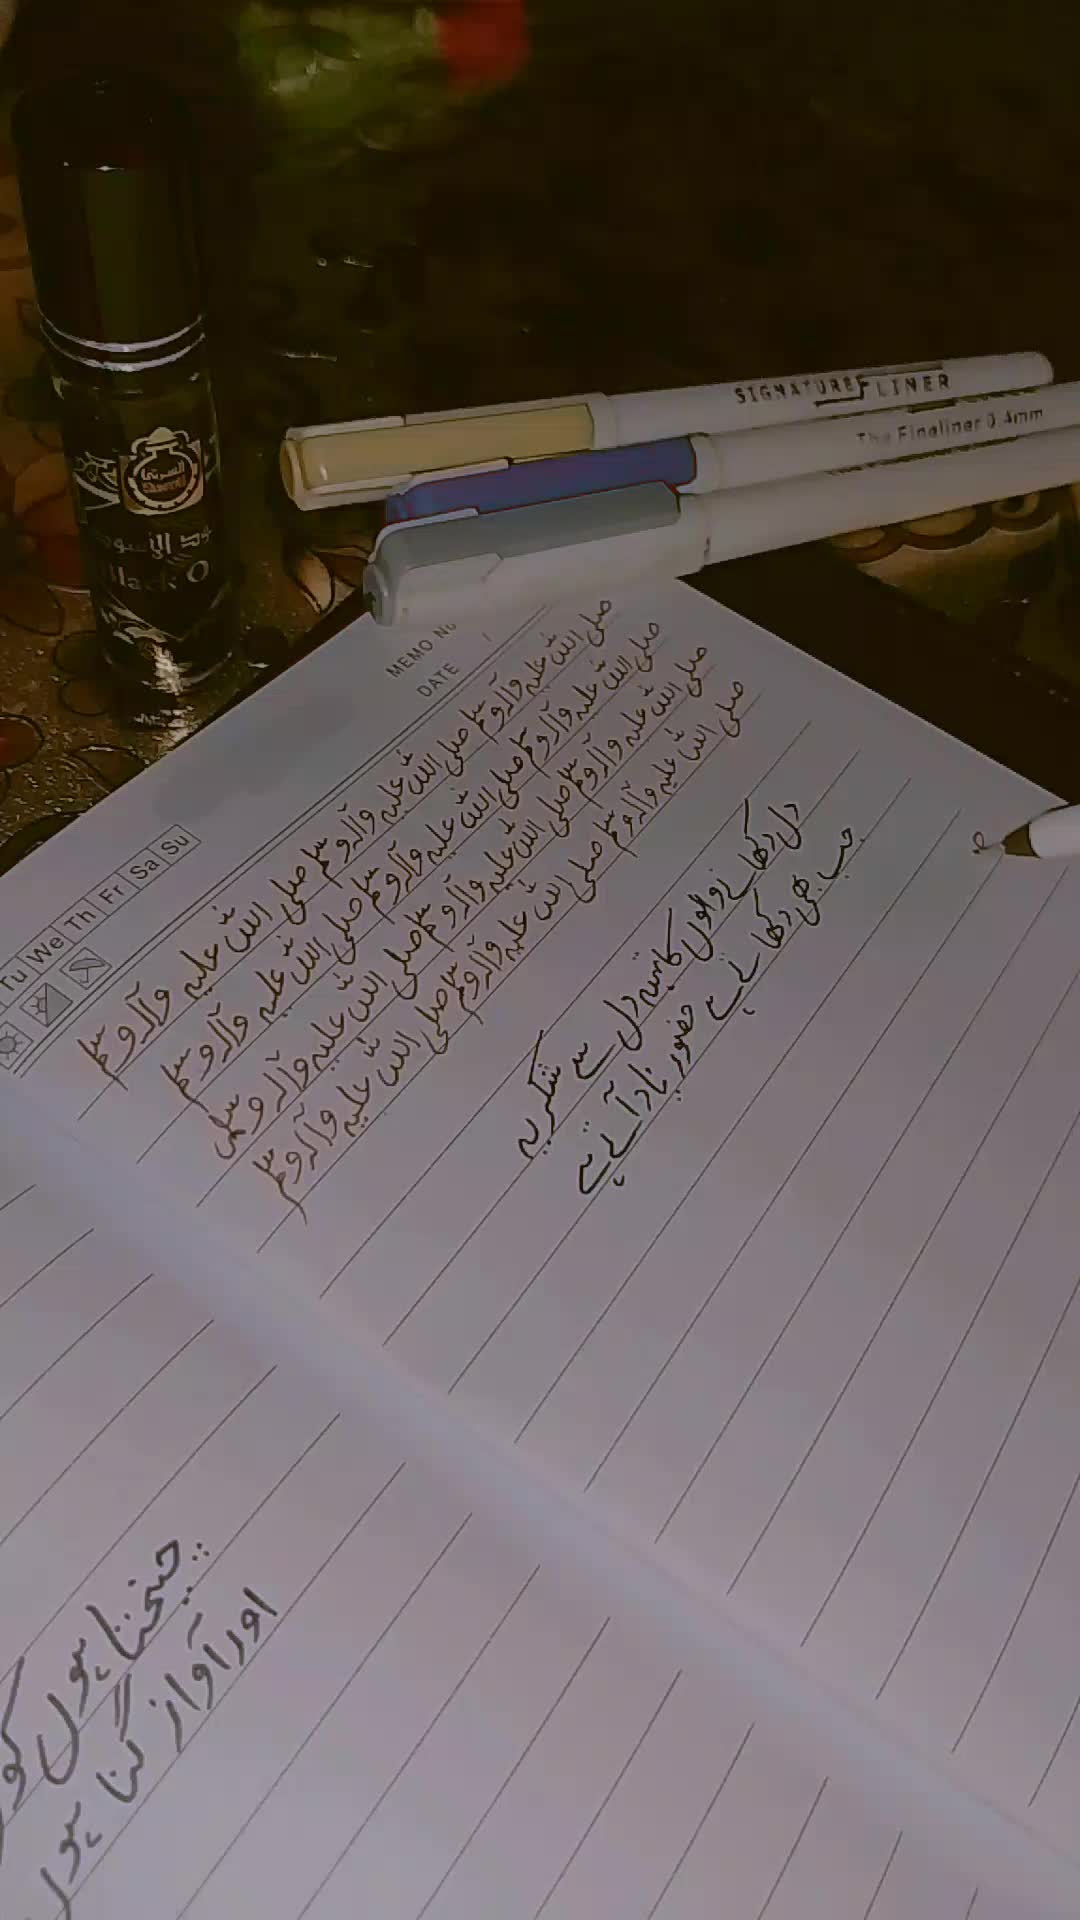 SIGNATURE FLINER
The Fineliner 0.4mm
السرتي
Surrati
MEMO No
DATE
Tu We Th Fr Sa Su
صلی اللہ علیہ وآلہ وسلم صلی اللہ علیہ وآلہ وسلم صلی اللہ علیہ وآلہ وسلم
صلی اللہ علیہ وآلہ وسلم صلی اللہ علیہ وآلہ وسلم صلی اللہ علیہ وآلہ وسلم
صلی اللہ علیہ وآلہ وسلم صلی اللہ علیہ وآلہ وسلم صلی اللہ علیہ وآلہ وسلم
صلی اللہ علیہ وآلہ وسلم صلی اللہ علیہ وآلہ وسلم صلی اللہ علیہ وآلہ وسلم
دل دکھانے والوں کا تہہ دل سے شکریہ
جب بھی دکھا ہے حضور یاد آئے ہے
چیختا ہوں
اور آواز گنا ہوں